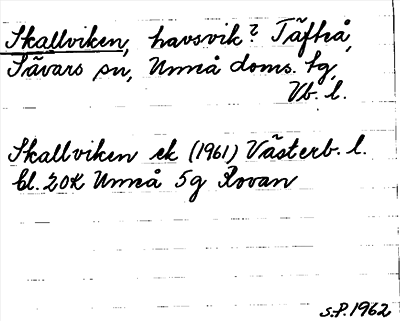 Skallviken, havsvik? Täfteå,
Sävars sn, Umeå doms. tg,
Vb. l.
Skallviken ek (1961) Västerb. l.
bl. 20K Umeå 5g Rovan
S.P. 1962